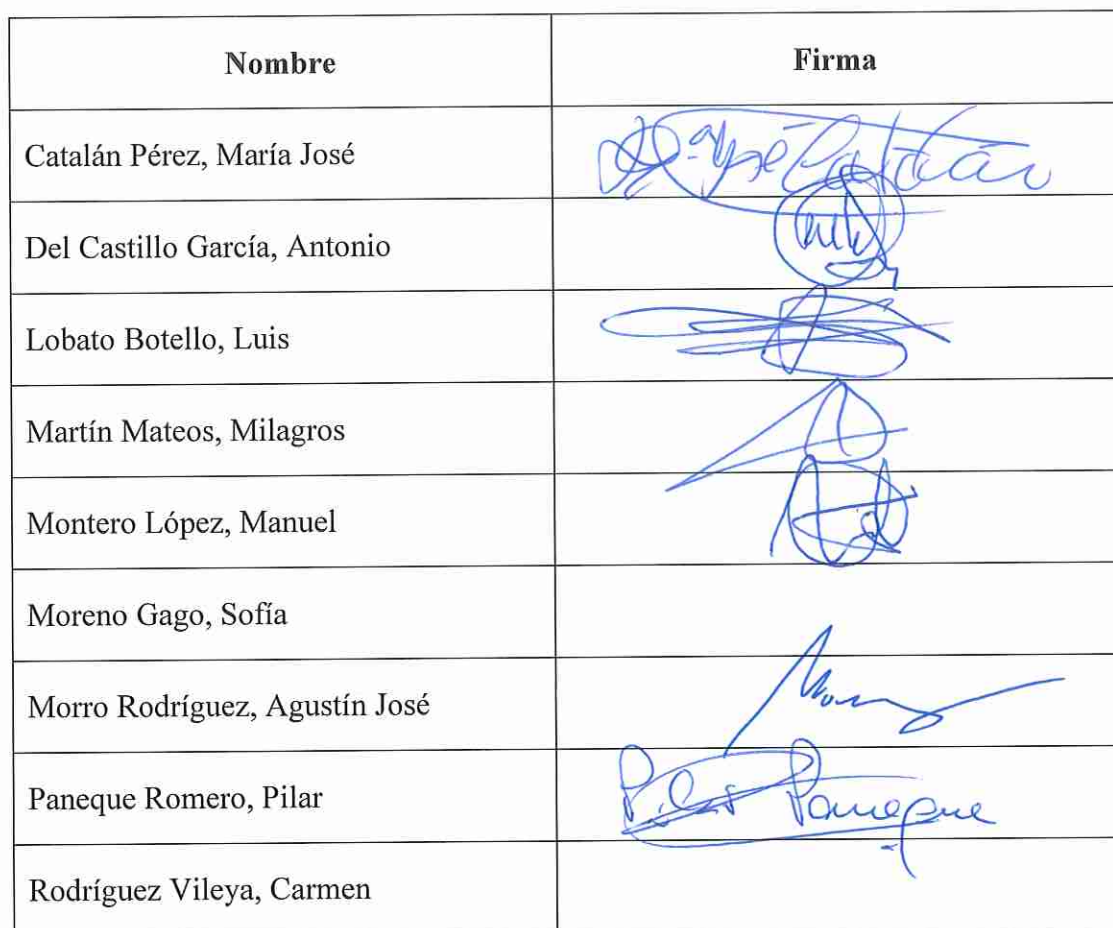 Nombre Firma
Catalán Pérez, María José Mª José Catalán
Del Castillo García, Antonio
Lobato Botello, Luis
Martín Mateos, Milagros
Montero López, Manuel
Moreno Gago, Sofía
Morro Rodríguez, Agustín José
Paneque Romero, Pilar Pilar Paneque
Rodríguez Vileya, Carmen